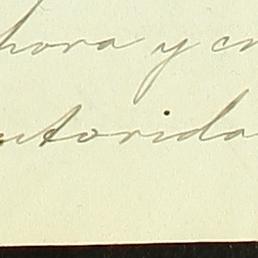 hora y cn
utorida